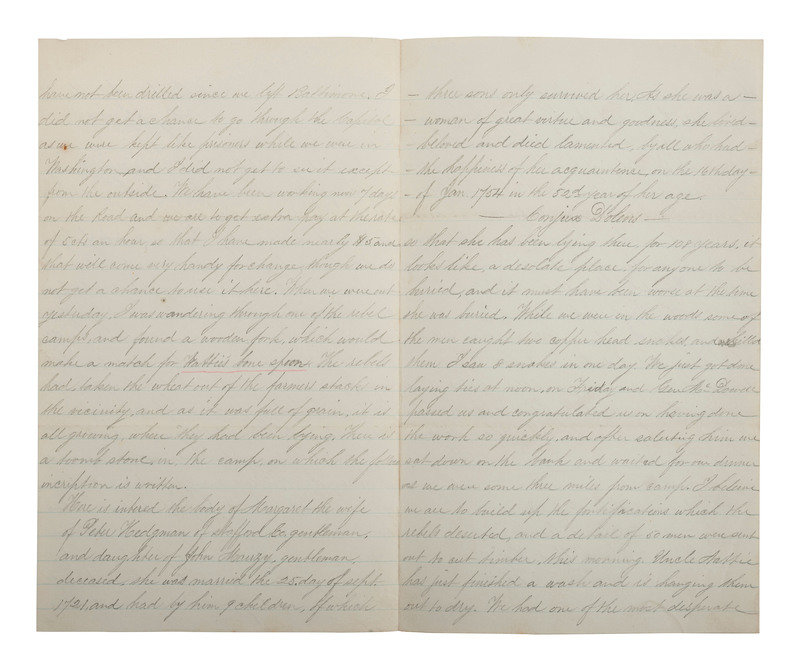 have not been drilled since we left Baltimore. I
did not get a chance to go through the Capitol
as we were kept like prisoners while we were in
Washington, and I did not get to see it except
from the outside. We have been working now 7 days
on the Road and we are to get extra pay at the rate
of 5 cts an hour, so that I have made nearly $5 and
that will come very handy for change, though we do
not get a chance to use it here. When we were out
yesterday, I was wandering through one of the rebel
camps, and found a wooden fork, which would
make a match for Hattie's bone spoon. The rebels
had taken the wheat out of the farmers stacks in
the vicinity, and as it was full of grain, it is
all growing, where they had been lying. There is
a toomb stone, in the camp, on which the
inscription is written.
Here is intered the body of Margaret the wife
of Peter Hedgman of Stafford Co gentleman.
and daughter of John Mauzy, gentleman,
deceased, she was married the 25 day of sept.
1721, and had by him 9 children, of which
– three sons only survived her, As she was a –
– woman of great virtue and goodness, she lived –
– beloved and died lamented, by all who had –
– the happiness of her acquaintence, on the 16th day –
– of Jan. 1754 in the 52d year of her age.
— Conjux Dolens —
so that she has been lying there, for 108 years. it
looks like, a desolate place for anyone to be
buried, and it must have been worse at the time
she was buried. While we were in the woods some of
the men caught two copper head snakes and killed
them. I saw 8 snakes in one day. We just got done
laying ties at noon, on Friday and Genl Mc Dowell
passed us and congratulated us on having done
the work so quickly, and after saluting him we
sat down on the bank and waited for our dinner
as we were some three miles from camp. I believe
we are to build up the fortifacations which the
rebels deserted, and a detail of 50 men were sent
out to cut timber, this morning. Uncle Hattie
has just finished a wash and is hanging them
out to dry. We had one of the most desperate